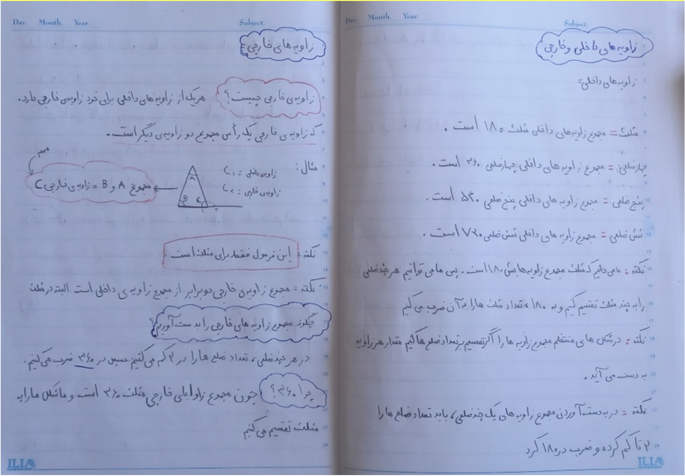 Day: Month: Year: Subject:
زاویه های داخلی و خارجی:
زاویه های داخلی:
مثلث = مجموع زاویه های داخلی مثلث ۱۸۰ است.
چهارضلعی = مجموع زاویه های داخلی چهارضلعی ۳۶۰ است.
پنج ضلعی = مجموع زاویه های داخلی پنج ضلعی ۵۴۰ است.
شش ضلعی = مجموع زاویه های داخلی شش ضلعی ۷۲۰ است.
نکته = ما می دانیم که مثلث مجموع زاویه هایش ۱۸۰ است. پس ما می توانیم هر چند ضلعی
را به چند مثلث تقسیم کنیم و به ۱۸۰ تعداد مثلث ها را به آن ضرب می کنیم
نکته = در شکل های منتظم مجموع زاویه ها را اگر تقسیم بر تعداد ضلع ها کنیم مقدار هر زاویه
به دست می آید.
نکته = در به دست آوردن مجموع زاویه های یک چند ضلعی، باید تعداد ضلع ها را
۲ تا کم کرده و ضرب در ۱۸۰ کرد
ILIA
Day: Month: Year: Subject:
زاویه های خارجی:
زاویه ی خارجی چیست؟ هر یک از زاویه های داخلی برای خود زاویه ی خارجی دارد.
که زاویه ی خارجی یک رأس مجموع دو زاویه ی دیگر است.
مثال:
C₁ = زاویه داخلی
C₂ = زاویه خارجی
A
B
C
مهم
مجموع A و B = زاویه ی خارجی C
نکته = این فرمول فقط برای مثلث است
نکته = مجموع زاویه ی خارجی دو برابر از مجموع زاویه ی داخلی است البته در مثلث
چگونه مجموع زاویه های خارجی را به دست آوریم؟
در هر چند ضلعی، تعداد ضلع ها را در ۲ کم می کنیم سپس در ۳۶۰ ضرب می کنیم.
چرا ۳۶۰؟ چون مجموع زوایای خارجی مثلث ۳۶۰ است و ما شکل ها را به
مثلث تقسیم می کنیم
ILIA